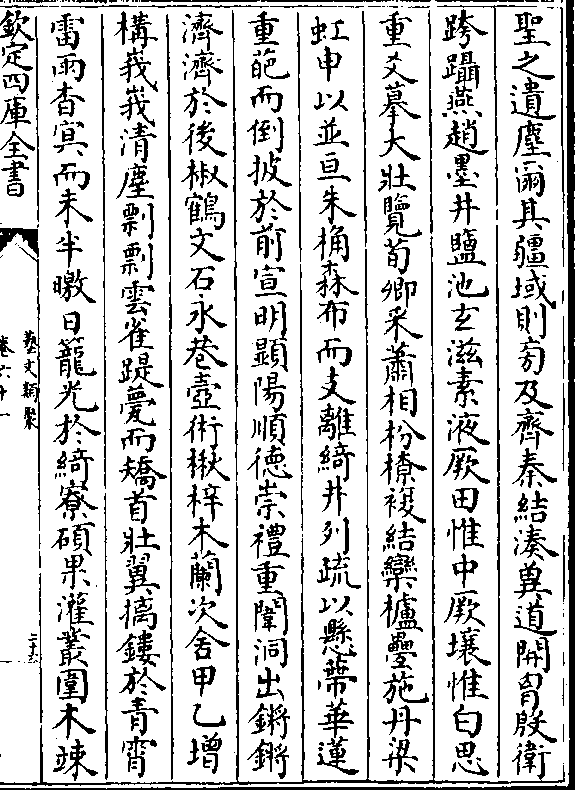 聖之遺塵爾其疆域則旁及齊秦結湊冀道開胷殷衛
跨躡燕趙墨井鹽池玄滋素液厥田惟中厥壤惟白思
重爻摹大壯覽荀卿采蕭相枌橑複結欒櫨疊施丹梁
虹申以並亘朱桷森布而支離綺井列疏以懸蔕華蓮
重葩而倒披於前宣明顯陽順德崇禮重闈洞出鏘鏘
濟濟於後椒鶴文石永巷壼術楸梓木蘭次舍甲乙增
構峩峩清塵剽剽雲雀踶甍而矯首壯翼摛鏤於青霄
雷雨杳冥而未半曒日籠光於綺寮碩果灌叢圍木竦
欽定四庫全書
藝文類聚
卷六十一
二十六